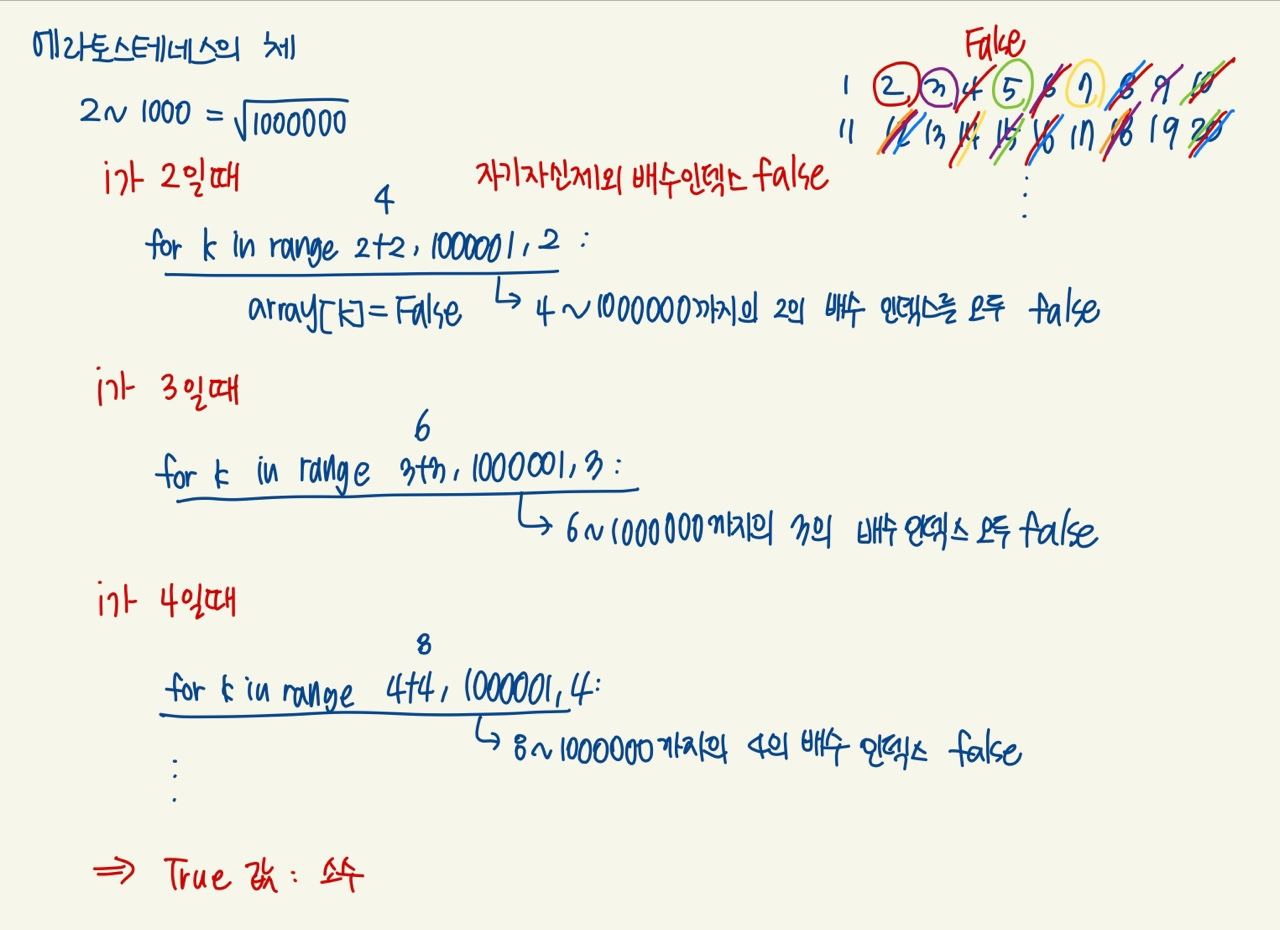 에라토스테네스의 체
False
2~ 1000 = √1000000
1 2 3 4 5 6 7 8 9 10
11 12 13 14 15 16 17 18 19 20
i가 2일때
자기자신제외 배수인덱스 false
4
for k in range 2+2, 1000001, 2 :
array[k]=False
4 ~1000000까지의 2의 배수 인덱스를 모두 false
i가 3일때
6
for k in range 3+3, 1000001, 3 :
6~1000000까지의 3의 배수 인덱스 모두 false
i가 4일때
8
for k in range 4+4, 1000001, 4:
8~1000000까지의 4의 배수 인덱스 false
⇒ True 값 : 소수